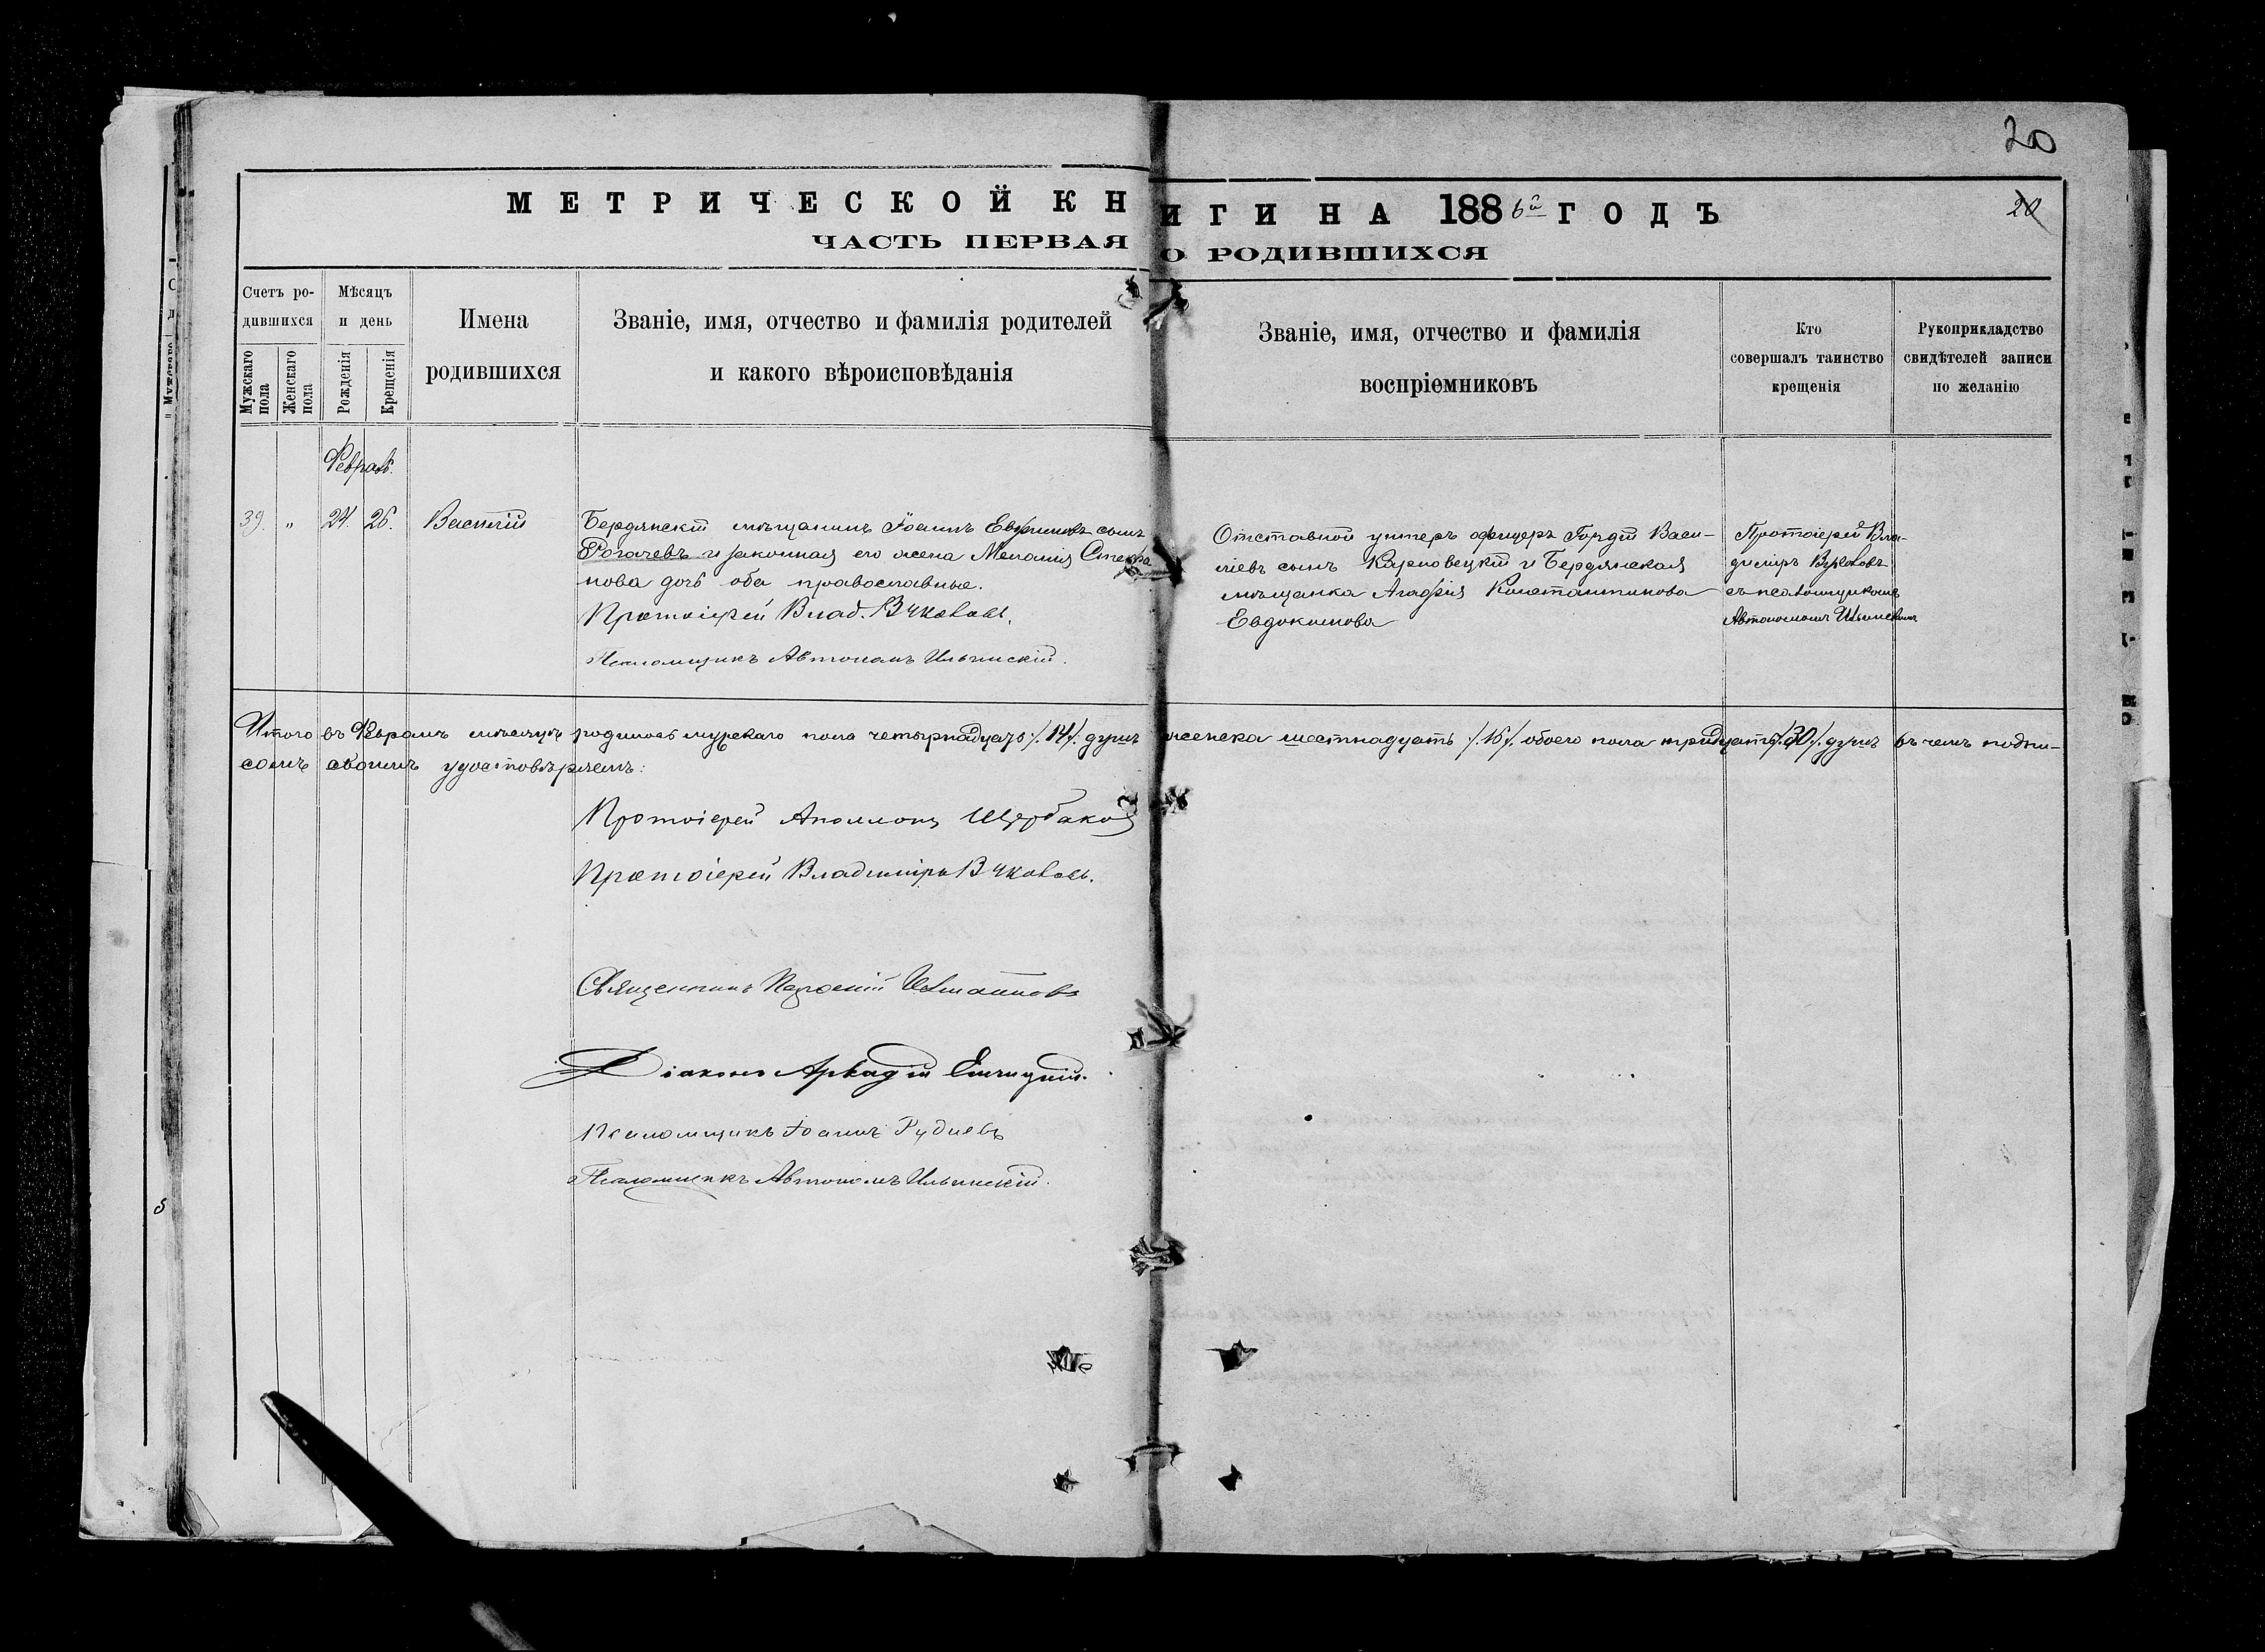 20
МЕТРИЧЕСКОЙ КНИГИ НА 1886й ГОДЪ
20
ЧАСТЬ ПЕРВАЯ О РОДИВШИХСЯ
Счетъ ро-
дившихся
Мужскаго
пола
Женскаго
пола
Мѣсяцъ
и день
Рожденія
Крещенія
Имена
родившихся
Званіе, имя, отчество и фамилія родителей
и какого вѣроисповѣданія
Званіе, имя, отчество и фамилія
воспріемниковъ
Кто
совершалъ таинство
крещенія
Рукоприкладство
свидѣтелей записи
по желанію
Февраль.
39. " 24. 26. Василій
Бердянскій мѣщанинъ Іоаннъ Евфимовъ сынъ
Рогачевъ и законная его жена Меланія Стефа
нова дочь оба православные.
Протоіерей Влад. Вучковъ.
Псаломщикъ Автономъ Ильинскій.
Отставной унтеръ офицеръ Гордій Васи-
ліевъ сынъ Карповецкій и Бердянская
мѣщанка Агафія Константинова
Евдокимова
Протоіерей Вла-
диміръ
съ псаломщикомъ
Автономомъ Ильинскимъ
Итого въ Февралѣ мѣсяцѣ родилось мужскаго пола четырнадцать /.14/. душъ женска шестнадцать /.16/. обоего пола тридцать /.30/. душъ въ чемъ подпи-
сомъ своимъ удостовѣряемъ:
Протоіерей Аполлонъ Щербаковъ
Протоіерей Владиміръ
Священникъ
Діаконъ Аркадій
Псаломщикъ Іоаннъ Рудневъ
Псаломщикъ Автономъ Ильинскій.